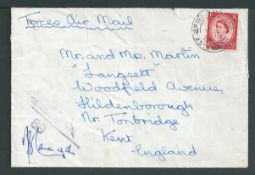 Forces Air Mail
Mr. and Mrs. Martin
"Langsett"
Woodfield Avenue,
Hildenborough
Nr. Tonbridge
Kent
England